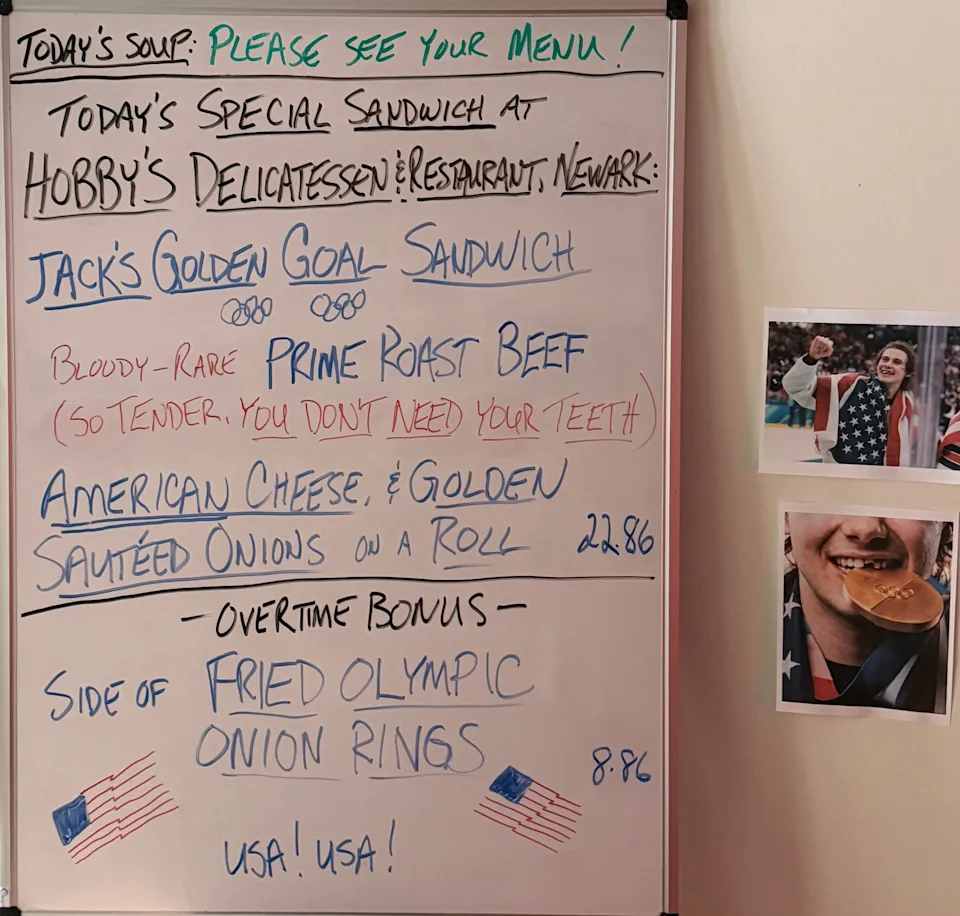 TODAY'S SOUP: PLEASE SEE YOUR MENU!
TODAY'S SPECIAL SANDWICH AT
HOBBY'S DELICATESSEN & RESTAURANT, NEWARK:
JACK'S GOLDEN GOAL SANDWICH
BLOODY-RARE PRIME ROAST BEEF
(SO TENDER, YOU DON'T NEED YOUR TEETH)
AMERICAN CHEESE, & GOLDEN
SAUTÉED ONIONS ON A ROLL 22.86
- OVERTIME BONUS -
SIDE OF FRIED OLYMPIC
ONION RINGS 8.86
USA! USA!